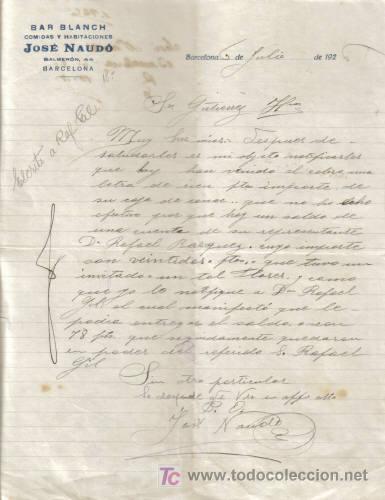 BAR BLANCH
COMIDAS Y HABITACIONES
JOSÉ NAUDÓ
SALMERÓN, 44
BARCELONA
Barcelona 5 de Julio de 192
Gutierrez Hnos
Escrito a Raf Gil
Muy Sres mios: Despues de
saludarles es mi objeto notificarles
que hoy han venido al cobro una
letra de cien pts importe de
su caja de que no he
efectivo por que hay un saldo de
una cuenta de su representante
Dn Rafael Barquez cuyo importe
son veintidos pts. que tuvo un
invitado un tal Flores y como
que yo lo notifique a Dn Rafael
Gil el cual manifestó que le
podia entregar el saldo o sean
78 pts que seguidamente quedaron
en poder del referido S. Rafael
Gil
Sin otro particular
se despide de Vds su affmo
José Naudó
TC www.todocoleccion.net